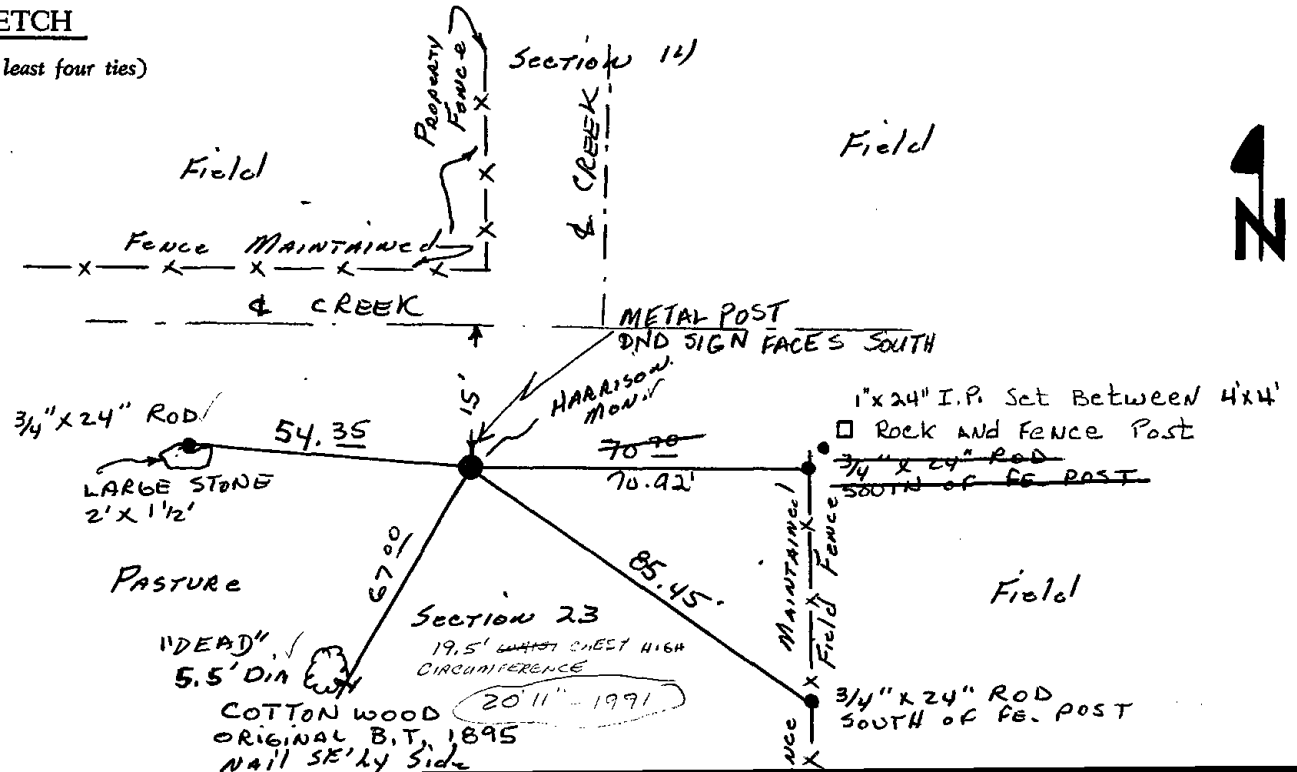 ETCH
least four ties)
Property
Fence
Section 14
Field
Field
℄ CREEK
N
Fence Maintained
℄ CREEK
METAL POST
DND SIGN FACES SOUTH
15'
HARRISON
MON.
3/4" X 24" ROD
54.35
70.90
70.92'
1" x 24" I.P. Set Between 4'x4'
Rock AND Fence Post
3/4" x 24" ROD
SOUTH OF FE. POST
LARGE STONE
2' X 1 1/2'
MAINTAINED
Field Fence
67.00
85.45'
PASTURE
Field
Section 23
19.5' CHEST HIGH
CIRCUMFERENCE
20' 11" - 1991
"DEAD"
5.5' DIA
COTTON WOOD
ORIGINAL B.T. 1895
NAIL SE'LY Side
3/4" x 24" ROD
SOUTH OF FE. POST